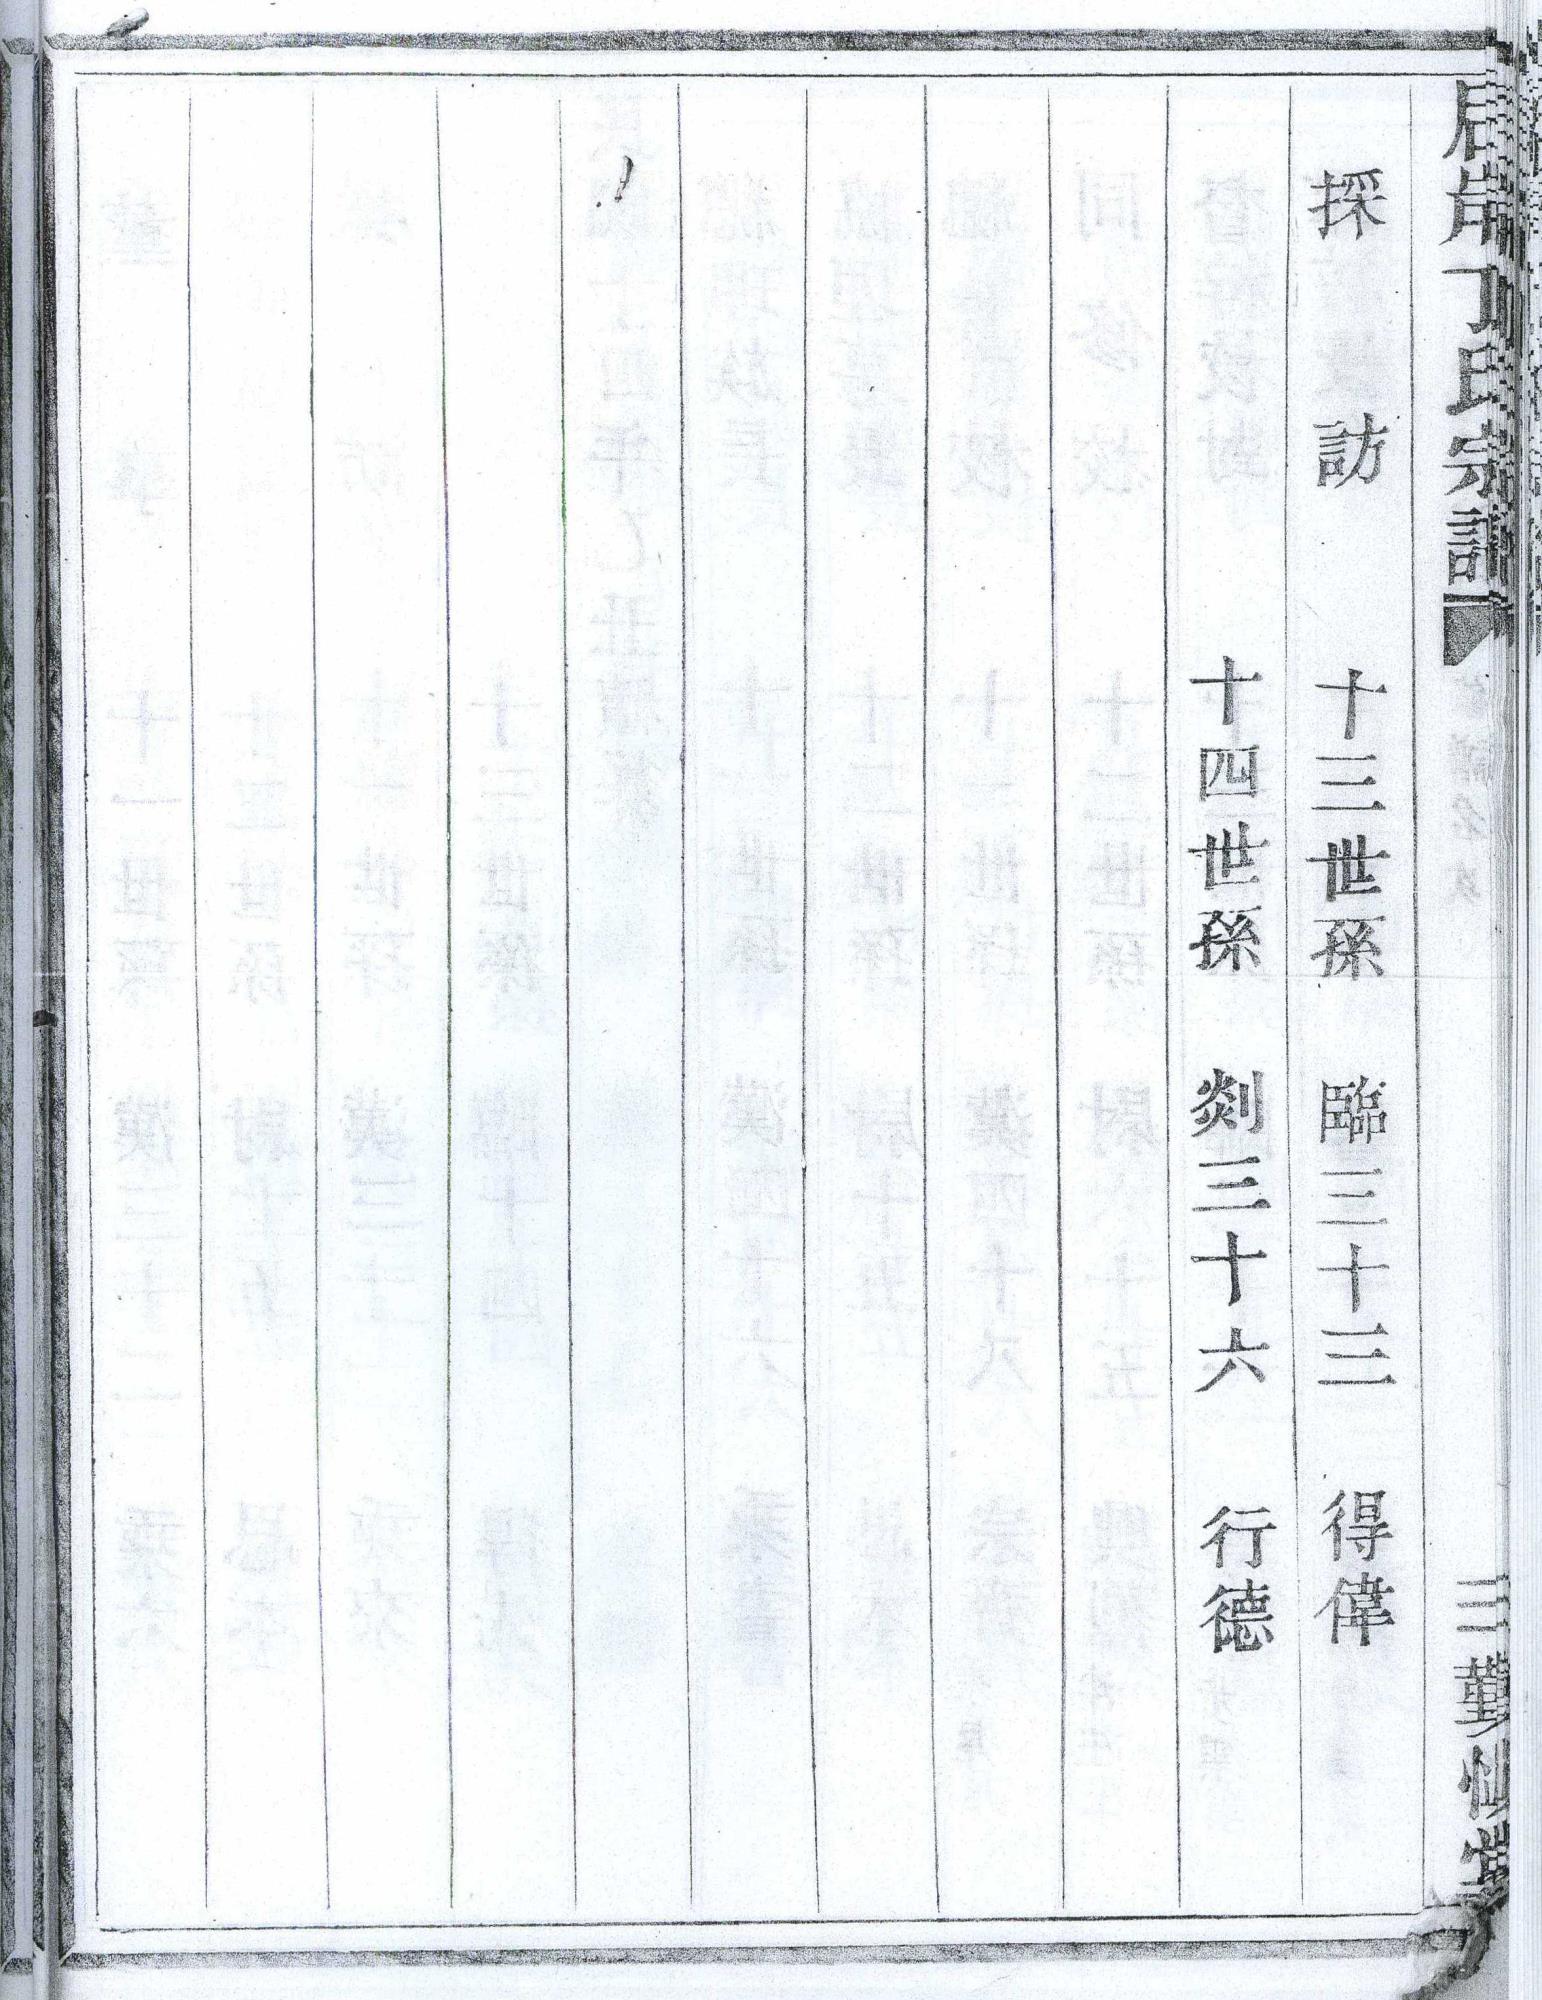 採訪 十三世孫 臨三十三 得偉
十四世孫 剡三十六 行德
氏宗譜
三 勤慎堂